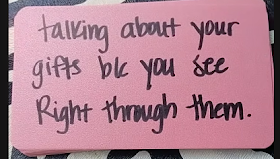 talking about your
gifts b/c you see
Right through them.